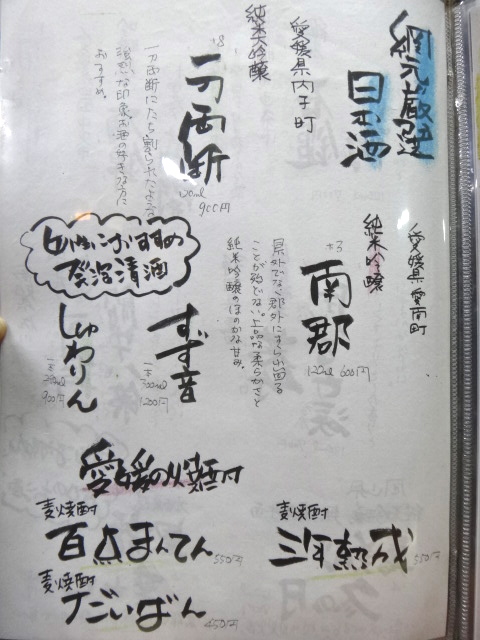 網元厳選
日本酒
愛媛県内子町
純米大吟醸
+8
一刀両断
120ml
900円
一刀両断にたち割られたような
印象お酒の好きな方に
おすすめ。
愛媛県愛南町
純米吟醸
+3
南郡
120ml 600円
県外でなく郡外にすら出回る
ことが殆どない。上品な柔らかさと
純米吟醸のほのかな甘み。
女性におすすめ
発泡清酒
すず音
一本
300ml
1200円
しゅわりん
一本
900円
愛媛の焼酎
麦焼酎
百点まんてん 550円
麦焼酎
三年熟成 550円
麦焼酎
だいばん 450円